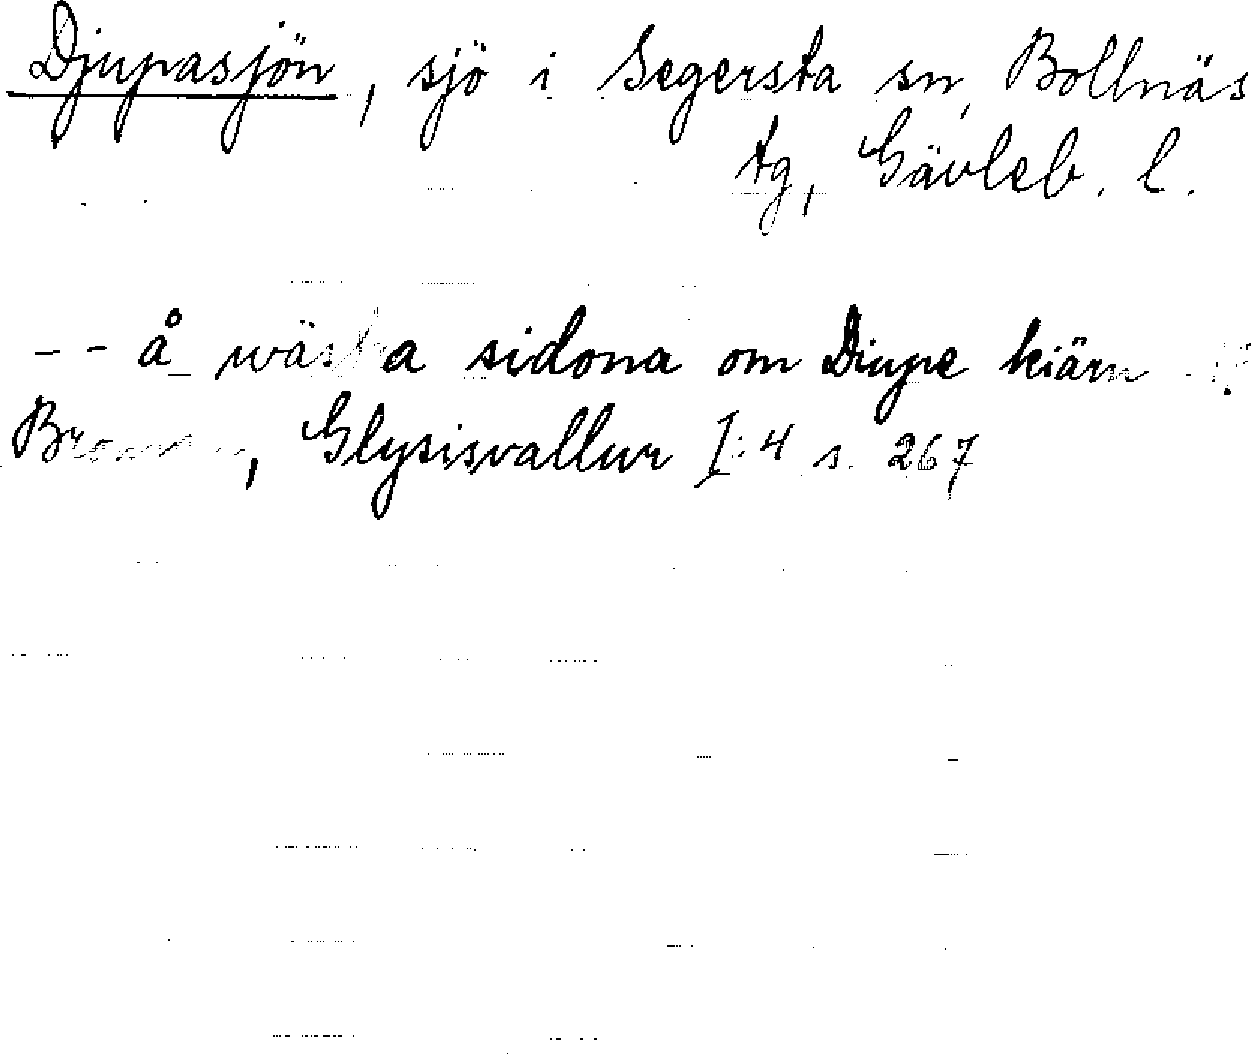 Djupasjön, sjö i Segersta sn, Bollnäs
tg, Gävleb. l.
- - å wästra sidona om Diupe kiärn
Broman, Glysisvallur I:4 s. 267